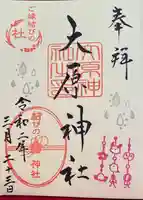 奉拝
大原神社
ご縁結びの
社
結びの
神社
令和二年
三月二十三日